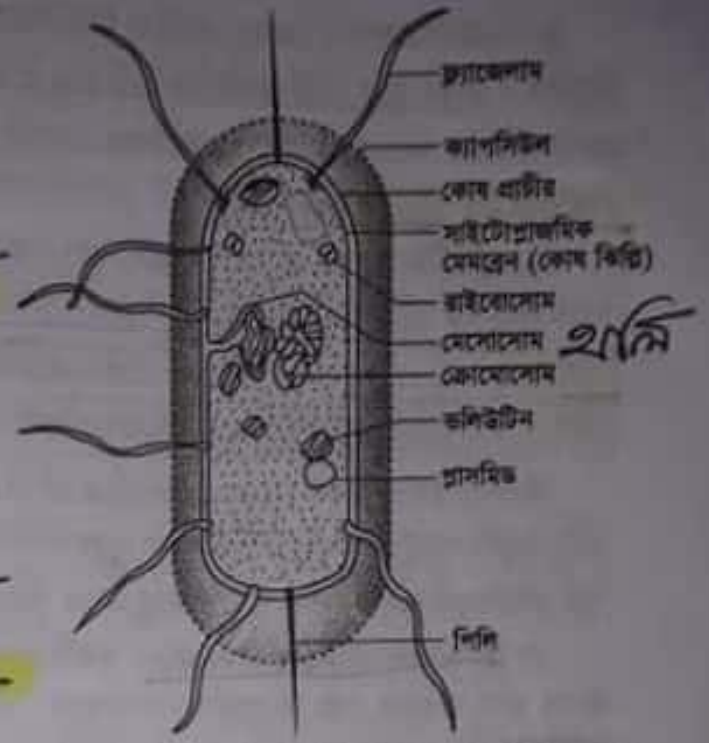 ফ্ল্যাজেলাম
ক্যাপসিউল
কোষ প্রাচীর
সাইটোপ্লাজমিক
মেমব্রেন (কোষ ঝিল্লি)
রাইবোসোম
মেসোসোম থলি
ক্রোমোসোম
ভলিউটিন
প্লাসমিড
পিলি